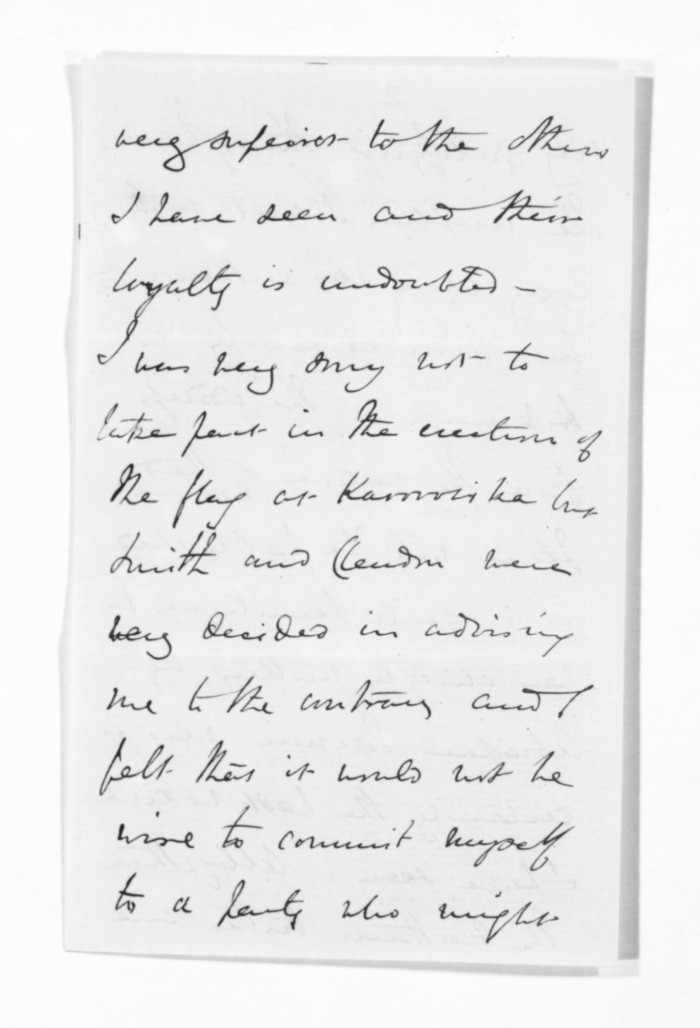 very superior to the others
I have seen and their
loyalty is undoubted –
I was very sorry not to
take part in the erection of
the flag at Kawowiha but
Smith and Clendon were
very decided in advising
me to the contrary and I
felt that it would not be
wise to commit myself
to a party who might